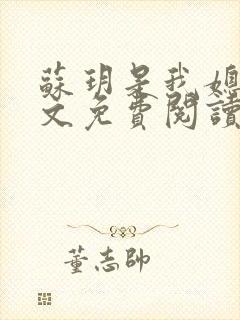 蘇玥是我媳
文免費閱讀
董志帥